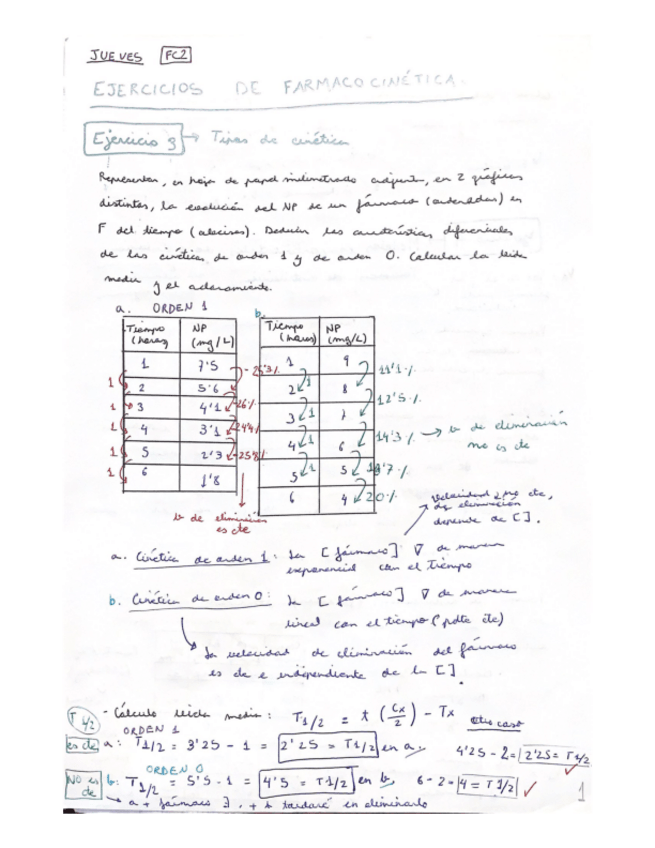 JUEVES FC2
EJERCICIOS DE FARMACOCINÉTICA.
Ejercicio 3 → Tipos de cinética
Representar, en hoja de papel milimetrado adjunta, en 2 gráficas
distintas, la evolución del NP de un fármaco (ordenadas) en
F del tiempo (abscisas). Deducir las características diferenciales
de las cinéticas de orden 1 y de orden 0. Calcular la vida
media y el aclaramiento.
a. ORDEN 1
Tiempo (horas) NP (mg/L)
1 7'5
2 5'6
3 4'1
4 3'1
5 2'3
6 1'8
1
1
1
1
1
- 25'3%
- 26%
- 24'4%
- 25'8%
v de eliminación
es cte
b.
Tiempo (horas) NP (mg/L)
1 9
2 8
3 7
4 6
5 5
6 4
1
1
1
1
11'1%
12'5%
14'3% → v de eliminación
no es cte
20%
Velocidad no cte,
de eliminación
depende de [ ].
a. Cinética de orden 1: La [fármaco] ∇ de manera
exponencial con el tiempo
b. Cinética de orden 0: La [fármaco] ∇ de manera
lineal con el tiempo (pdte cte)
La velocidad de eliminación del fármaco
es cte e independiente de la [ ].
T 1/2 - Cálculo vida media: T1/2 = t (Cx/2) - Tx otro caso
ORDEN 1
es cte a: T1/2 = 3'25 - 1 = 2'25 = T1/2 en a, 4'25 - 2 = 2'25 = T1/2 ✓
ORDEN 0
NO es cte b: T1/2 = 5'5 - 1 = 4'5 = T1/2 en b, 6 - 2 = 4 = T1/2 ✓
a + fármaco ∃, + t tardará en eliminarlo
1